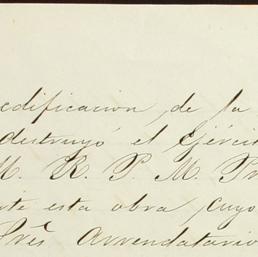 edificacion, de la
destruyó el Ejérci
M. R. P. M. Pr
te esta obra, cuyo
Arrendatario